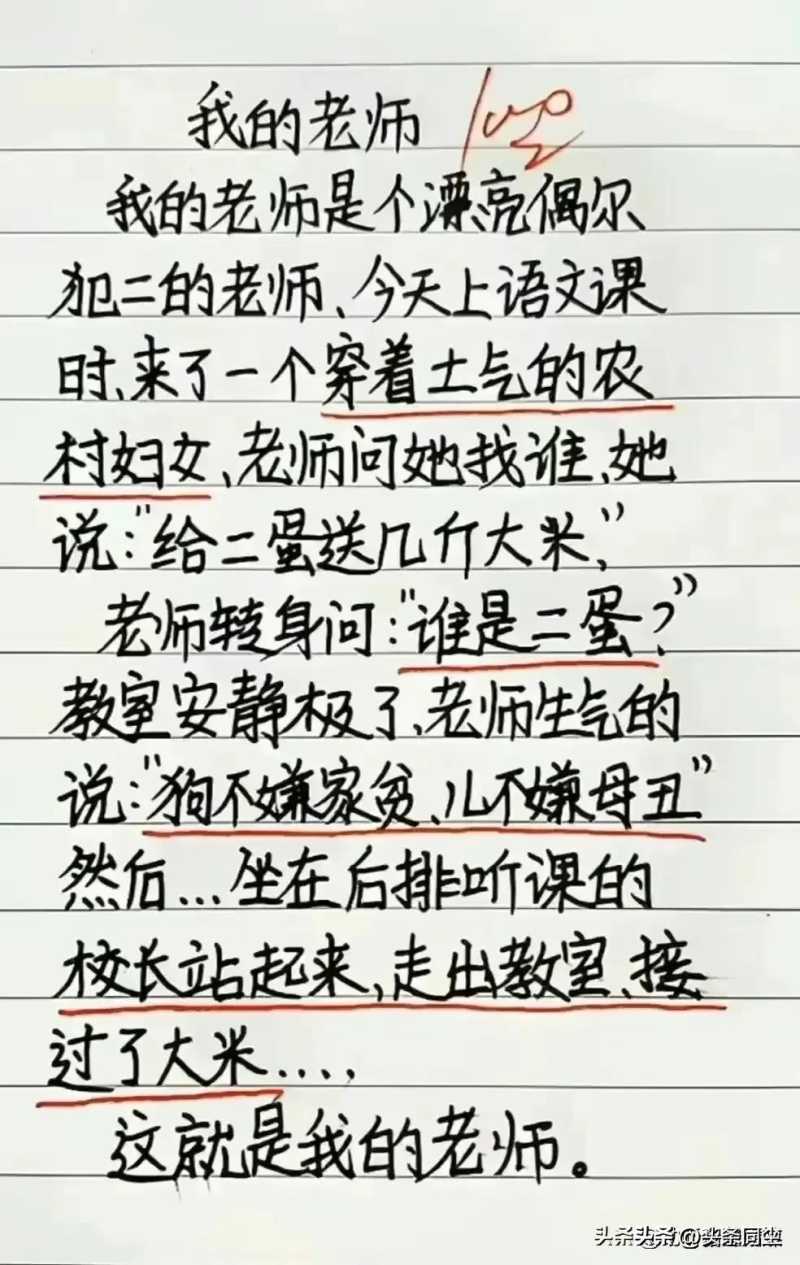 我的老师 100
我的老师是个漂亮偶尔
犯二的老师、今天上语文课
时、来了一个穿着土气的农
村妇女、老师问她找谁、她
说:"给二蛋送几斤大米、"
老师转身问:"谁是二蛋?"
教室安静极了、老师生气的
说:"狗不嫌家贫、儿不嫌母丑"
然后...坐在后排听课的
校长站起来,走出教室、接
过了大米....,
这就是我的老师。
头条 @